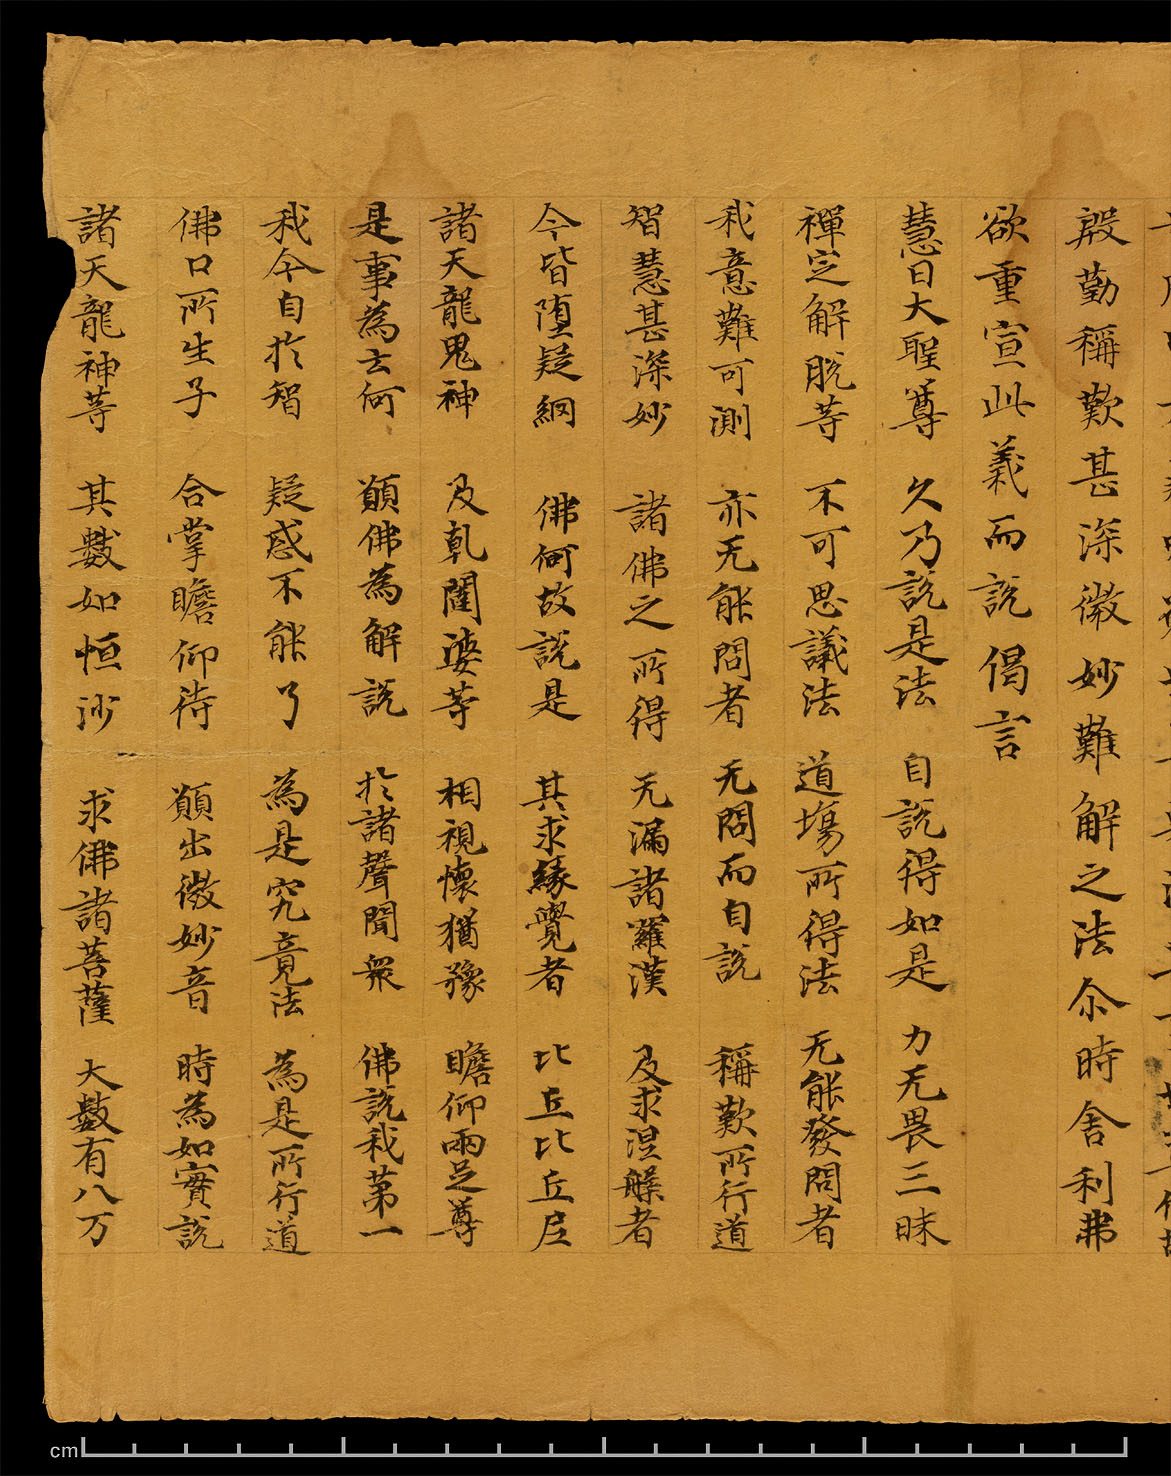 殷勤稱歎甚深微妙難解之法尒時舍利弗
欲重宣此義而說偈言
慧日大聖尊 久乃說是法 自說得如是 力无畏三昧
禪定解脫等 不可思議法 道場所得法 无能發問者
我意難可測 亦无能問者 无問而自說 稱歎所行道
智慧甚深妙 諸佛之所得 无漏諸羅漢 及求涅槃者
今皆墮疑網 佛何故說是 其求緣覺者 比丘比丘尼
諸天龍鬼神 及乹闥婆等 相視懷猶豫 瞻仰兩足尊
是事為云何 願佛為解說 於諸聲聞衆 佛說我第一
我今自於智 疑惑不能了 為是究竟法 為是所行道
佛口所生子 合掌瞻仰待 願出微妙音 時為如實說
諸天龍神等 其數如恒沙 求佛諸菩薩 大數有八万
cm